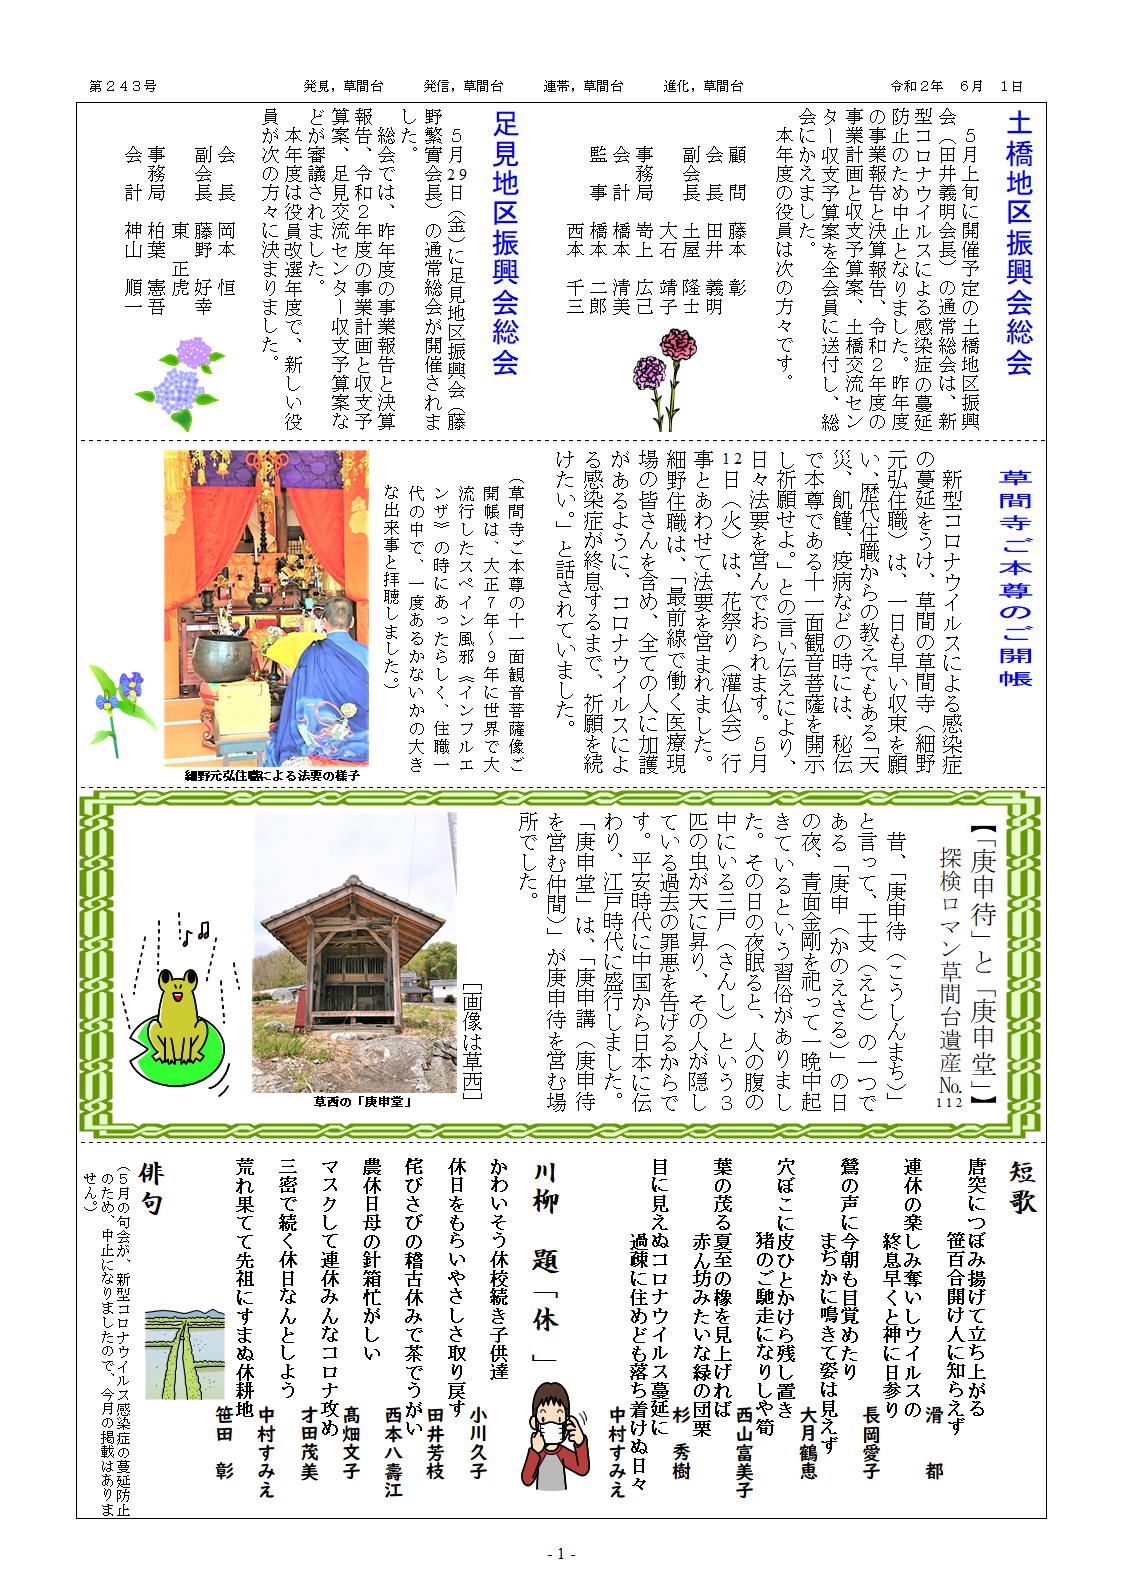 第２４３号　発見，草間台　発信，草間台　連帯，草間台　進化，草間台　令和２年　６月　１日
土橋地区振興会総会
　５月上旬に開催予定の土橋地区振興
会（田井義明会長）の通常総会は、新
型コロナウイルスによる感染症の蔓延
防止のため中止となりました。昨年度
の事業報告と決算報告、令和２年度の
事業計画と収支予算案、土橋交流セン
ター収支予算案を全会員に送付し、総
会にかえました。
　本年度の役員は次の方々です。
顧　問　藤本　彰
会　長　田井　義明
副会長　土屋　隆士
　　　　大石　靖子
事務局　嵜上　広己
会　計　橋本　清美
監　事　橋本　二郎
　　　　西本　千三
足見地区振興会総会
　５月29日（金）に足見地区振興会（藤
野繁實会長）の通常総会が開催されま
した。
　総会では、昨年度の事業報告と決算
報告、令和２年度の事業計画と収支予
算案、足見交流センター収支予算案な
どが審議されました。
　本年度は役員改選年度で、新しい役
員が次の方々に決まりました。
会　長　岡本　恒
副会長　藤野　好幸
　　　　東　正虎
事務局　柏葉　憲吾
会　計　神山　順一
草間寺ご本尊のご開帳
　新型コロナウイルスによる感染症
の蔓延をうけ、草間の草間寺（細野
元弘住職）は、一日も早い収束を願
い、歴代住職からの教えでもある「天
災、飢饉、疫病などの時には、秘伝
で本尊である十一面観音菩薩を開示
し祈願せよ。」との言い伝えにより、
日々法要を営んでおられます。５月
12日（火）は、花祭り（灌仏会）行
事とあわせて法要を営まれました。
細野住職は、「最前線で働く医療現
場の皆さんを含め、全ての人に加護
があるように、コロナウイルスによ
る感染症が終息するまで、祈願を続
けたい。」と話されていました。
（草間寺ご本尊の十一面観音菩薩像ご
開帳は、大正７年～９年に世界で大
流行したスペイン風邪《インフルエ
ンザ》の時にあったらしく、住職一
代の中で、一度あるかないかの大き
な出来事と拝聴しました。）
細野元弘住職による法要の様子
【「庚申待」と「庚申堂」】
探検ロマン草間台遺産№112
　昔、「庚申待（こうしんまち）」
と言って、干支（えと）の一つで
ある「庚申（かのえさる）」の日
の夜、青面金剛を祀って一晩中起
きているという習俗がありまし
た。その日の夜眠ると、人の腹の
中にいる三尸（さんし）という３
匹の虫が天に昇り、その人が隠し
ている過去の罪悪を告げるからで
す。平安時代に中国から日本に伝
わり、江戸時代に盛行しました。
「庚申堂」は、「庚申講（庚申待
を営む仲間）」が庚申待を営む場
所でした。
［画像は草西］
草西の「庚申堂」
短歌
唐突につぼみ揚げて立ち上がる
笹百合開け人に知らえず
滑　都
連休の楽しみ奪いしウイルスの
終息早くと神に日参り
長岡愛子
鶯の声に今朝も目覚めたり
まぢかに鳴きて姿は見えず
大月鶴恵
穴ぼこに皮ひとかけら残し置き
猪のご馳走になりしや筍
西山富美子
葉の茂る夏至の橡を見上げれば
赤ん坊みたいな緑の団栗
杉　秀樹
目に見えぬコロナウイルス蔓延に
過疎に住めども落ち着けぬ日々
中村すみえ
川柳　題「休　」
かわいそう休校続き子供達
小川久子
休日をもらいやさしさ取り戻す
田井芳枝
侘びさびの稽古休みで茶でうがい
西本八壽江
農休日母の針箱忙がしい
髙畑文子
マスクして連休みんなコロナ攻め
才田茂美
三密で続く休日なんとしよう
中村すみえ
荒れ果てて先祖にすまぬ休耕地
笹田　彰
俳句
（５月の句会が、新型コロナウイルス感染症の蔓延防止
のため、中止になりましたので、今月の掲載はありま
せん。）
- 1 -